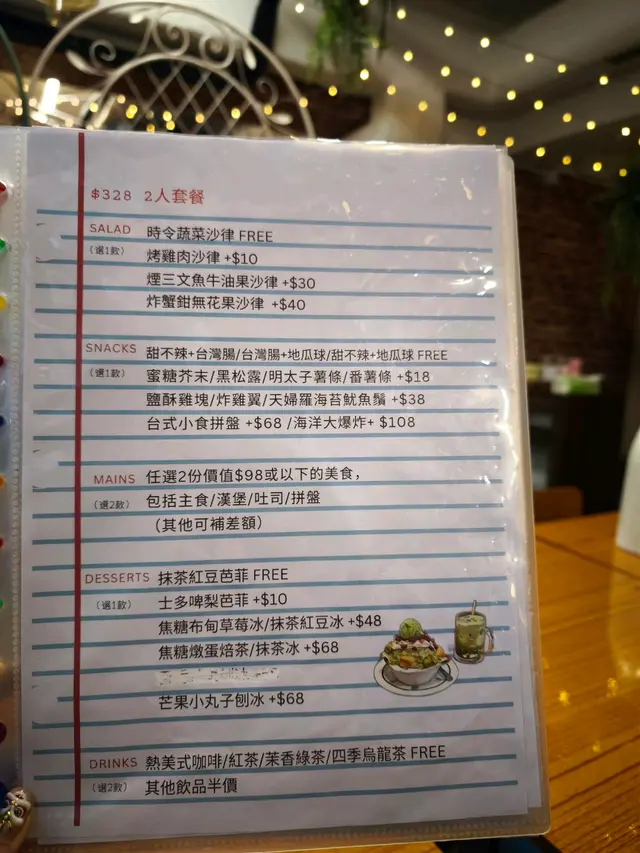 $328 2人套餐
SALAD 時令蔬菜沙律 FREE
(選1款) 烤雞肉沙律 +$10
煙三文魚牛油果沙律 +$30
炸蟹鉗無花果沙律 +$40
SNACKS 甜不辣+台灣腸/台灣腸+地瓜球/甜不辣+地瓜球 FREE
(選1款) 蜜糖芥末/黑松露/明太子薯條/番薯條 +$18
鹽酥雞塊/炸雞翼/天婦羅海苔魷魚鬚 +$38
台式小食拼盤 +$68 /海洋大爆炸+ $108
MAINS 任選2份價值$98或以下的美食,
(選2款) 包括主食/漢堡/吐司/拼盤
(其他可補差額)
DESSERTS 抹茶紅豆芭菲 FREE
(選1款) 士多啤梨芭菲 +$10
焦糖布甸草莓冰/抹茶紅豆冰 +$48
焦糖燉蛋焙茶/抹茶冰 +$68
芒果小丸子刨冰 +$68
DRINKS 熱美式咖啡/紅茶/茉香綠茶/四季烏龍茶 FREE
(選2款) 其他飲品半價